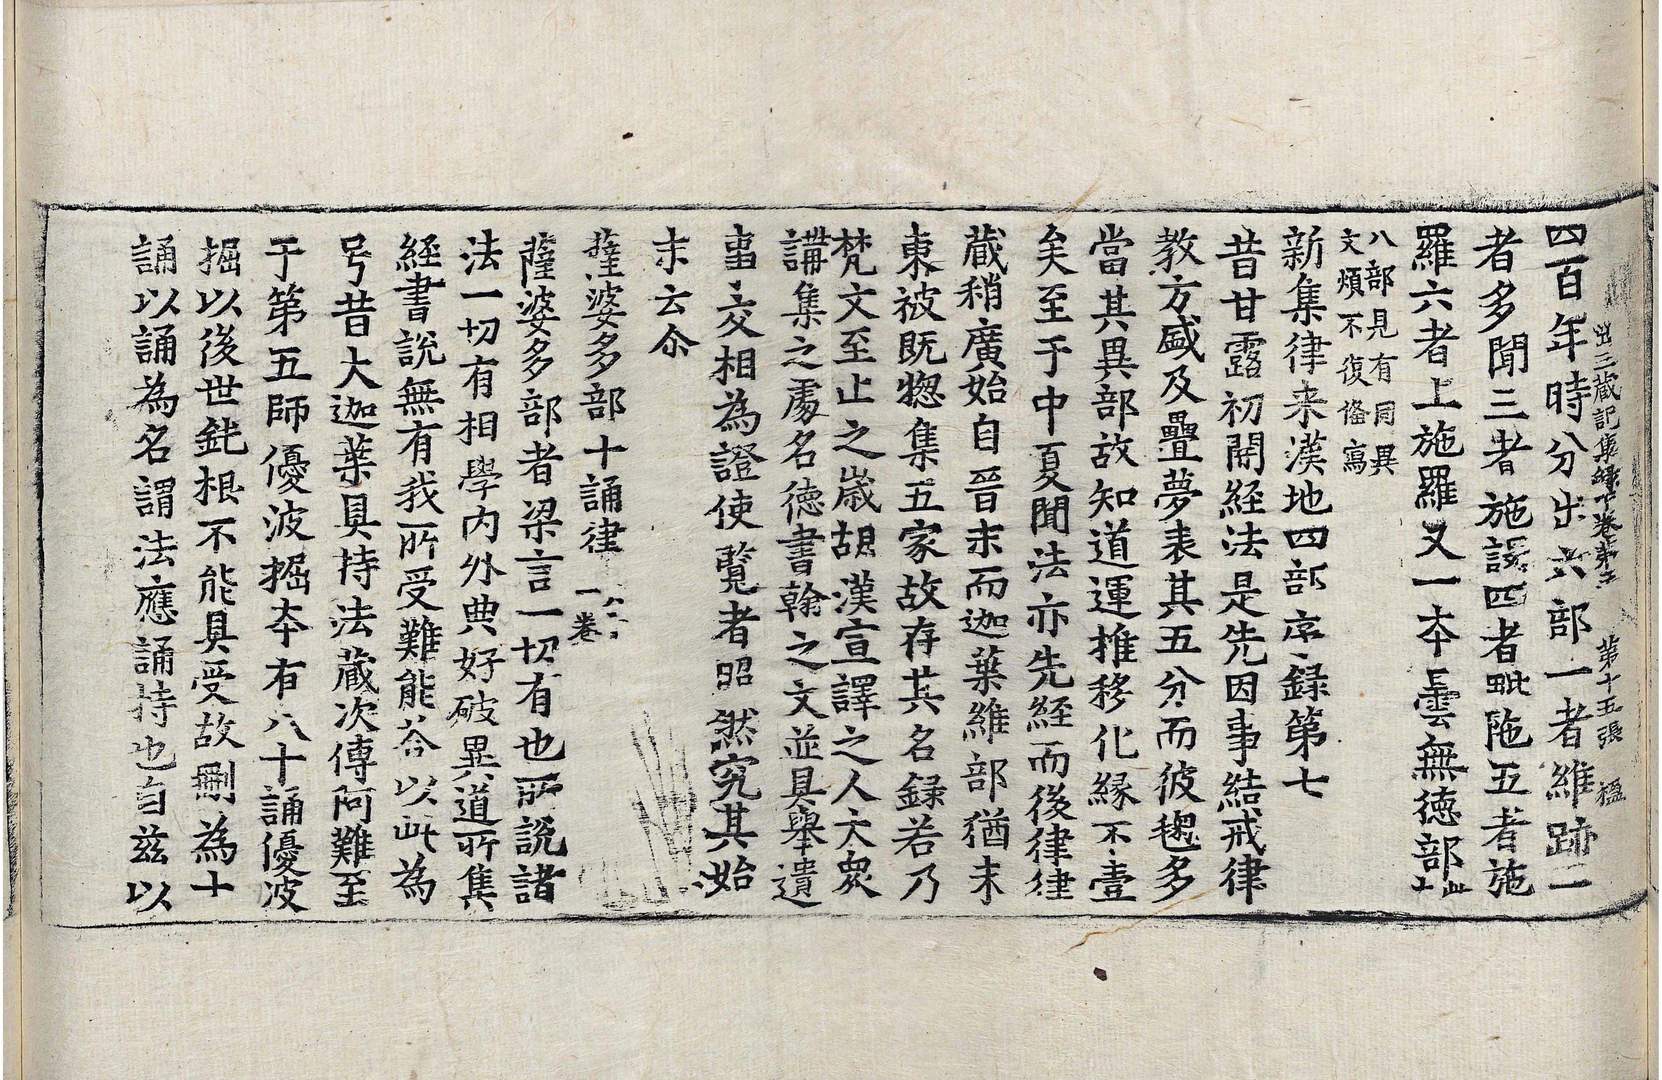 出三蔵記集録下卷第三 第十五張 楹
四百年時分出六部一者維跡二
者多聞三者施設四者毗陁五者施
羅六者上施羅又一本曇無徳部此十
八部見有同異
文煩不復俻寫
新集律来漢地四部序録第七
昔甘露初開經法是先因事結戒律
教方盛及疊夢表其五分而彼毱多
當其異部故知道運推移化縁不壹
矣至于中夏聞法亦先經而後律律
蔵稍廣始自晉末而迦葉維部猶未
東被既揔集五家故存其名録若乃
梵文至止之歳胡漢宣譯之人大衆
講集之處名徳書翰之文並具舉遺
事交相為證使覧者昭然究其始
末云尒
薩婆多部十誦律 六十
一卷
薩婆多部者梁言一切有也所說諸
法一切有相學内外典好破異道所集
經書說無有我所受難能荅以此為
号昔大迦葉具持法蔵次傳阿難至
于第五師優波掘本有八十誦優波
掘以後世鈍根不能具受故刪為十
誦以誦為名謂法應誦持也自兹以